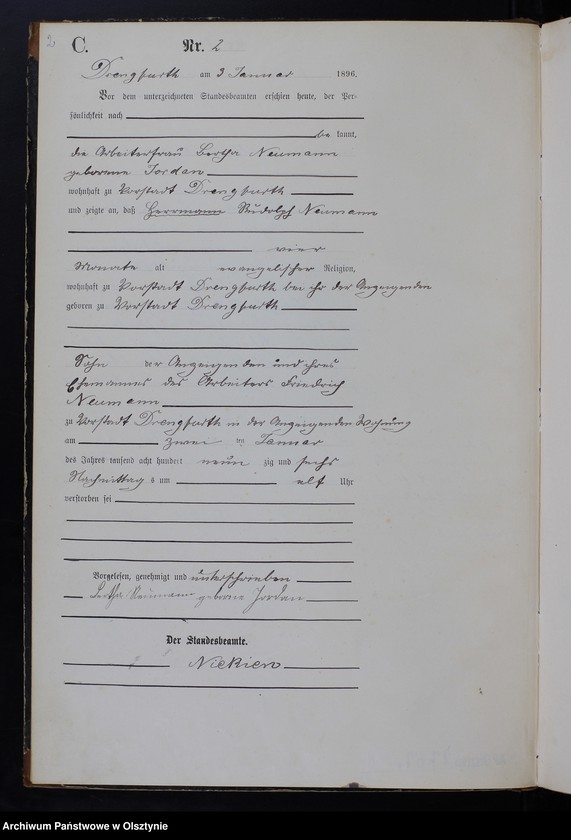 2
C. Nr. 2
Drengfurth am 3 Januar 1896.
Vor dem unterzeichneten Standesbeamten erschien heute, der Per-
sönlichkeit nach
be kannt,
die Arbeiterfrau Bertha Neumann
geborene Jordan
wohnhaft zu Vorstadt Drengfurth
und zeigte an, daß Herrmann Rudolph Neumann
vier
Monate alt evangelischer Religion,
wohnhaft zu Vorstadt Drengfurth bei ihr der Anzeigenden
geboren zu Vorstadt Drengfurth
Sohn der Anzeigenden und ihres
Ehemannes des Arbeiters Friedrich
Neumann
zu Vorstadt Drengfurth in der Anzeigenden Wohnung
am zwei ten Januar
des Jahres tausend acht hundert neun zig und sechs
Nachmittag s um elf Uhr
verstorben sei
Vorgelesen, genehmigt und unterschrieben
Bertha Neumann geborene Jordan
Der Standesbeamte.
Niekien
Archiwum Państwowe w Olsztynie